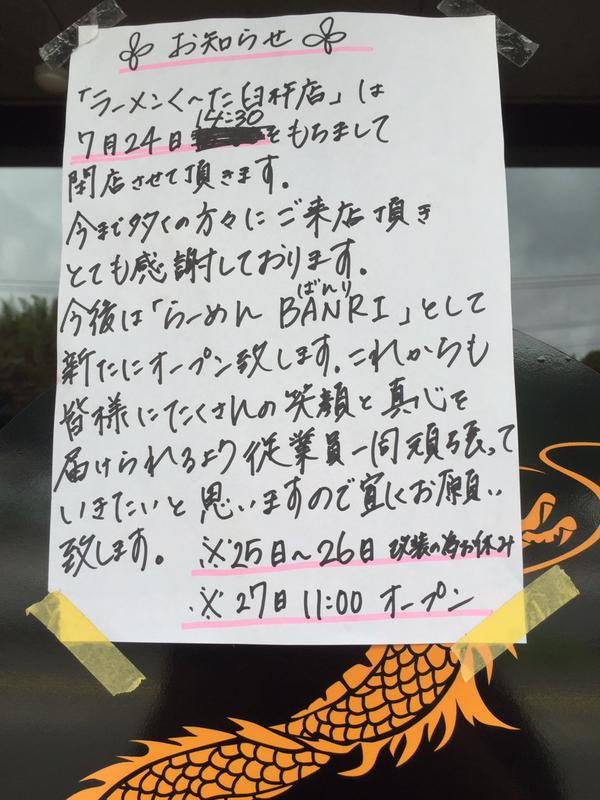 お知らせ
「ラーメンく～た臼杵店」は
7月24日14:30をもちまして
閉店させて頂きます。
今まで多くの方々にご来店頂き
とても感謝しております。
ばんり
今後は「らーめんBANRI」として
新たにオープン致します。これからも
皆様にたくさんの笑顔と真心を
届けられるよう従業員一同頑張って
いきたいと思いますので宜しくお願い
致します。 ※25日～26日 改装の為お休み
※27日 11:00 オープン